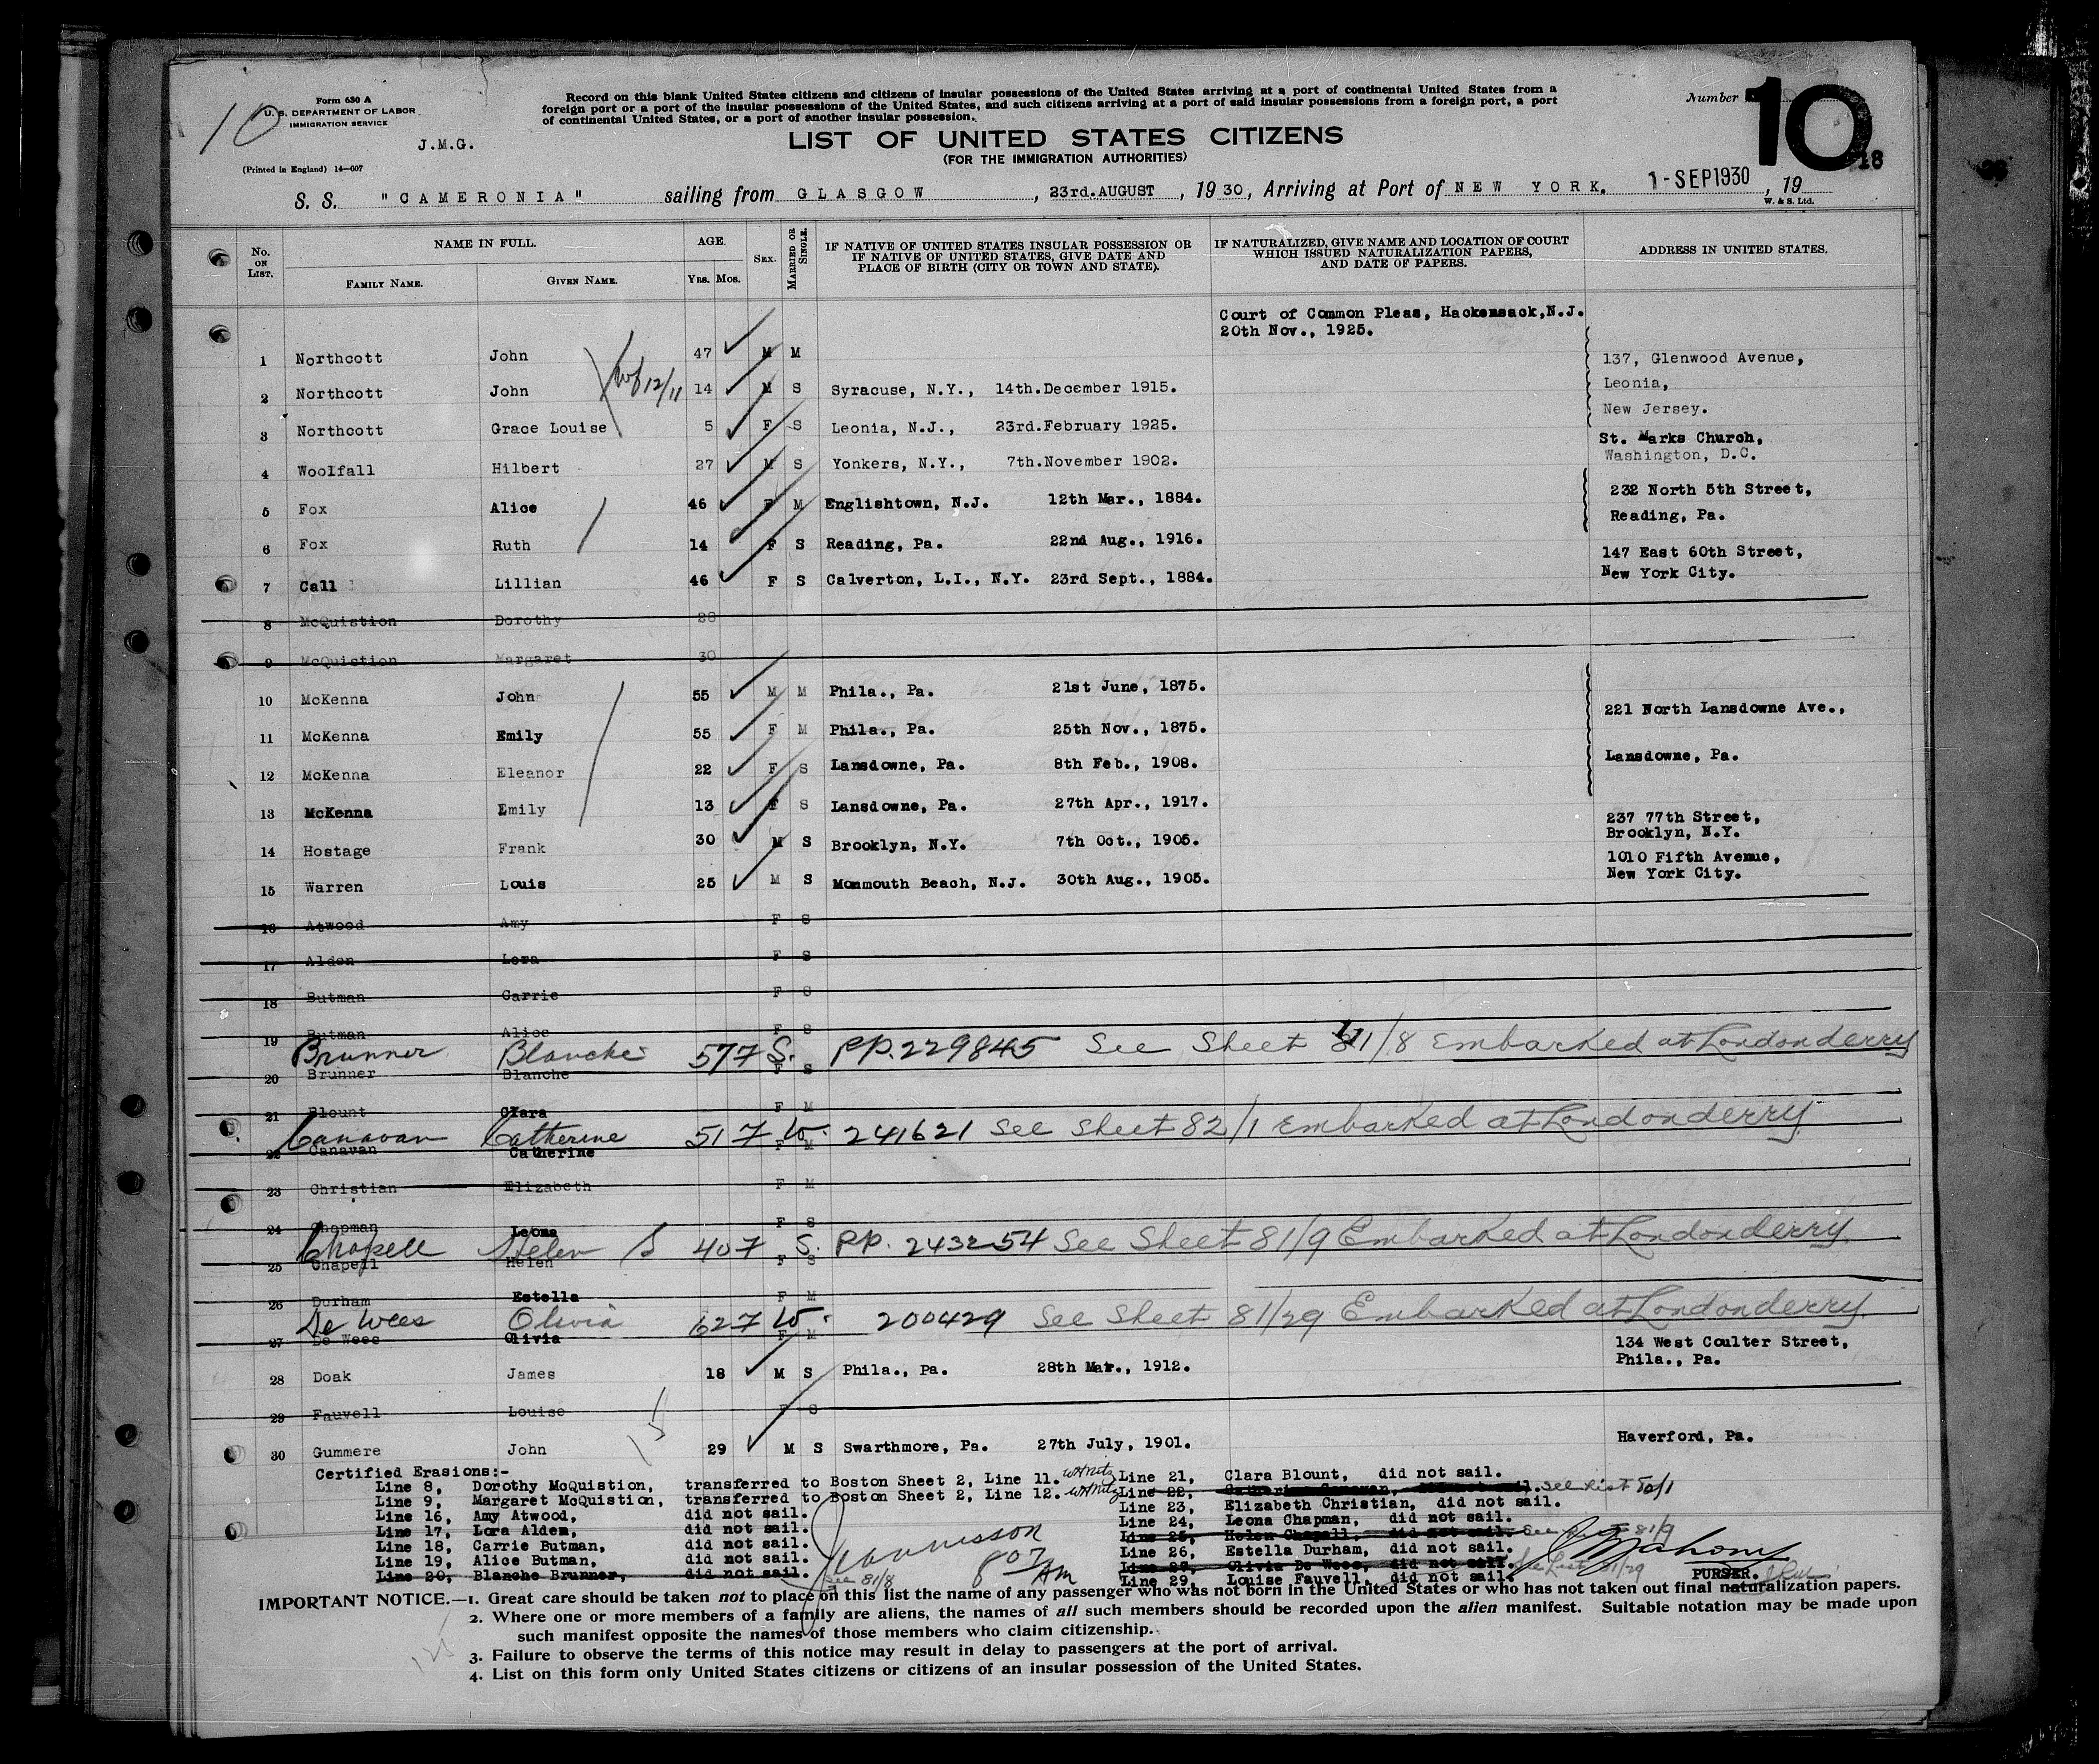 10
Form 630 A
U. S. DEPARTMENT OF LABOR
IMMIGRATION SERVICE
J.M.G.
(Printed in England) 14—607
Record on this blank United States citizens and citizens of insular possessions of the United States arriving at a port of continental United States from a
foreign port or a port of the insular possessions of the United States, and such citizens arriving at a port of said insular possessions from a foreign port, a port
of continental United States, or a port of another insular possession.
Number 10
18
LIST OF UNITED STATES CITIZENS
(FOR THE IMMIGRATION AUTHORITIES)
S. S. "CAMERONIA" sailing from GLASGOW, 23rd.AUGUST, 1930, Arriving at Port of NEW YORK. 1-SEP1930, 19
W. & S. Ltd.
No. ON LIST. NAME IN FULL. FAMILY NAME. GIVEN NAME. AGE. Yrs. Mos. SEX. MARRIED OR SINGLE. IF NATIVE OF UNITED STATES INSULAR POSSESSION OR IF NATIVE OF UNITED STATES, GIVE DATE AND PLACE OF BIRTH (CITY OR TOWN AND STATE). IF NATURALIZED, GIVE NAME AND LOCATION OF COURT WHICH ISSUED NATURALIZATION PAPERS, AND DATE OF PAPERS. ADDRESS IN UNITED STATES.
Court of Common Pleas, Hackensack,N.J.
20th Nov., 1925.
1 Northcott John 47 M M 137, Glenwood Avenue,
2 Northcott John 12/11 14 M S Syracuse, N.Y., 14th.December 1915. Leonia,
New Jersey.
3 Northcott Grace Louise 5 F S Leonia, N.J., 23rd.February 1925.
St. Marks Church,
4 Woolfall Hilbert 27 M S Yonkers, N.Y., 7th.November 1902. Washington, D.C.
5 Fox Alice 46 F M Englishtown, N.J. 12th Mar., 1884. 232 North 5th Street,
Reading, Pa.
6 Fox Ruth 14 F S Reading, Pa. 22nd Aug., 1916.
147 East 60th Street,
7 Call Lillian 46 F S Calverton, L.I., N.Y. 23rd Sept., 1884. New York City.
8 McQuistion Dorothy 28
9 McQuistion Margaret 30
10 McKenna John 55 M M Phila., Pa. 21st June, 1875.
221 North Lansdowne Ave.,
11 McKenna Emily 55 F M Phila., Pa. 25th Nov., 1875.
Lansdowne, Pa.
12 McKenna Eleanor 22 F S Lansdowne, Pa. 8th Feb., 1908.
13 McKenna Emily 13 F S Lansdowne, Pa. 27th Apr., 1917.
237 77th Street,
Brooklyn, N.Y.
14 Hostage Frank 30 M S Brooklyn, N.Y. 7th Oct., 1905.
1010 Fifth Avenue,
New York City.
15 Warren Louis 25 M S Monmouth Beach, N.J. 30th Aug., 1905.
16 Atwood Amy F S
17 Alden Lora F S
18 Butman Carrie F S
19 Butman Alice F S
Brunner Blanche 57 F S. PP.229845 See Sheet 81/8 Embarked at Londonderry
20 Brunner Blanche F S
21 Blount Clara F M
Canavan Catherine 51 F W. 241621 See Sheet 82/1 Embarked at Londonderry
22 Canavan Catherine F M
23 Christian Elizabeth F M
24 Chapman Leona F S
Chapell Helen S 40 F S. PP. 243254 See Sheet 81/9 Embarked at Londonderry
25 Chapell Helen F S
26 Durham Estella F M
De Wees Olivia 62 F W. 200429 See Sheet 81/29 Embarked at Londonderry
27 De Wees Olivia F M
134 West Coulter Street,
Phila., Pa.
28 Doak James 18 M S Phila., Pa. 28th Mar., 1912.
29 Fauvell Louise F S
30 Gummere John 29 M S Swarthmore, Pa. 27th July, 1901. Haverford, Pa.
Certified Erasions:-
Line 8, Dorothy McQuistion, transferred to Boston Sheet 2, Line 11.
Line 9, Margaret McQuistion, transferred to Boston Sheet 2, Line 12.
Line 16, Amy Atwood, did not sail.
Line 17, Lora Alden, did not sail.
Line 18, Carrie Butman, did not sail.
Line 19, Alice Butman, did not sail.
Line 20, Blanche Brunner, did not sail. See 81/8
Line 21, Clara Blount, did not sail.
Line 22, Catherine Canavan, did not sail. See List
Line 23, Elizabeth Christian, did not sail.
Line 24, Leona Chapman, did not sail.
Line 25, Helen Chapell, did not sail. See 81/9
Line 26, Estella Durham, did not sail.
Line 27, Olivia De Wees, did not sail. See List 81/29
Line 29, Louise Fauvell, did not sail.
PURSER.
IMPORTANT NOTICE.—1. Great care should be taken not to place on this list the name of any passenger who was not born in the United States or who has not taken out final naturalization papers.
2. Where one or more members of a family are aliens, the names of all such members should be recorded upon the alien manifest. Suitable notation may be made upon
such manifest opposite the names of those members who claim citizenship.
3. Failure to observe the terms of this notice may result in delay to passengers at the port of arrival.
4. List on this form only United States citizens or citizens of an insular possession of the United States.